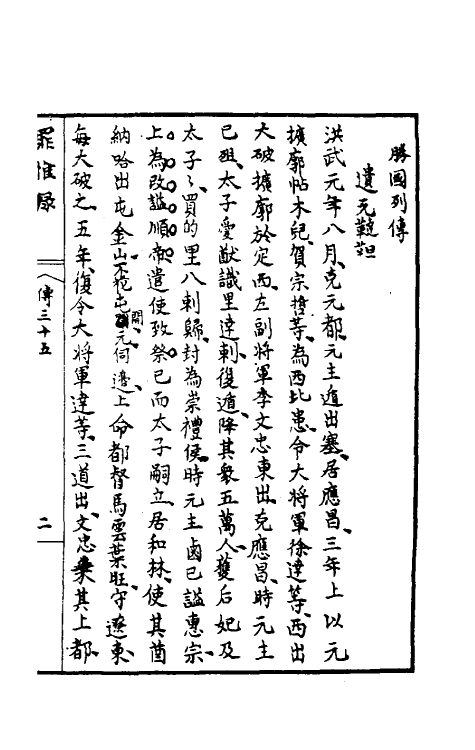 勝國列傳
遺元韃靼
洪武元年八月克元都元主遁出塞居應昌三年上以元
擴廓帖木兒賀宗哲等為西北患令大將軍徐達等西出
大破擴廓於定西左副將軍李文忠東出克應昌時元主
已殂太子愛猷識里達剌復遁降其衆五萬人獲后妃及
太子之買的里八剌歸封為崇禮侯時元主鹵已諡惠宗
上為改諡順帝遣使致祭已而太子嗣立居和林使其酋
納略出屯金山不犯屯開元伺邊上命都督馬雲葉旺守遼東
每大破之五年復令大將軍達等三道出文忠乗其上都
罪惟録
傳三十五
二